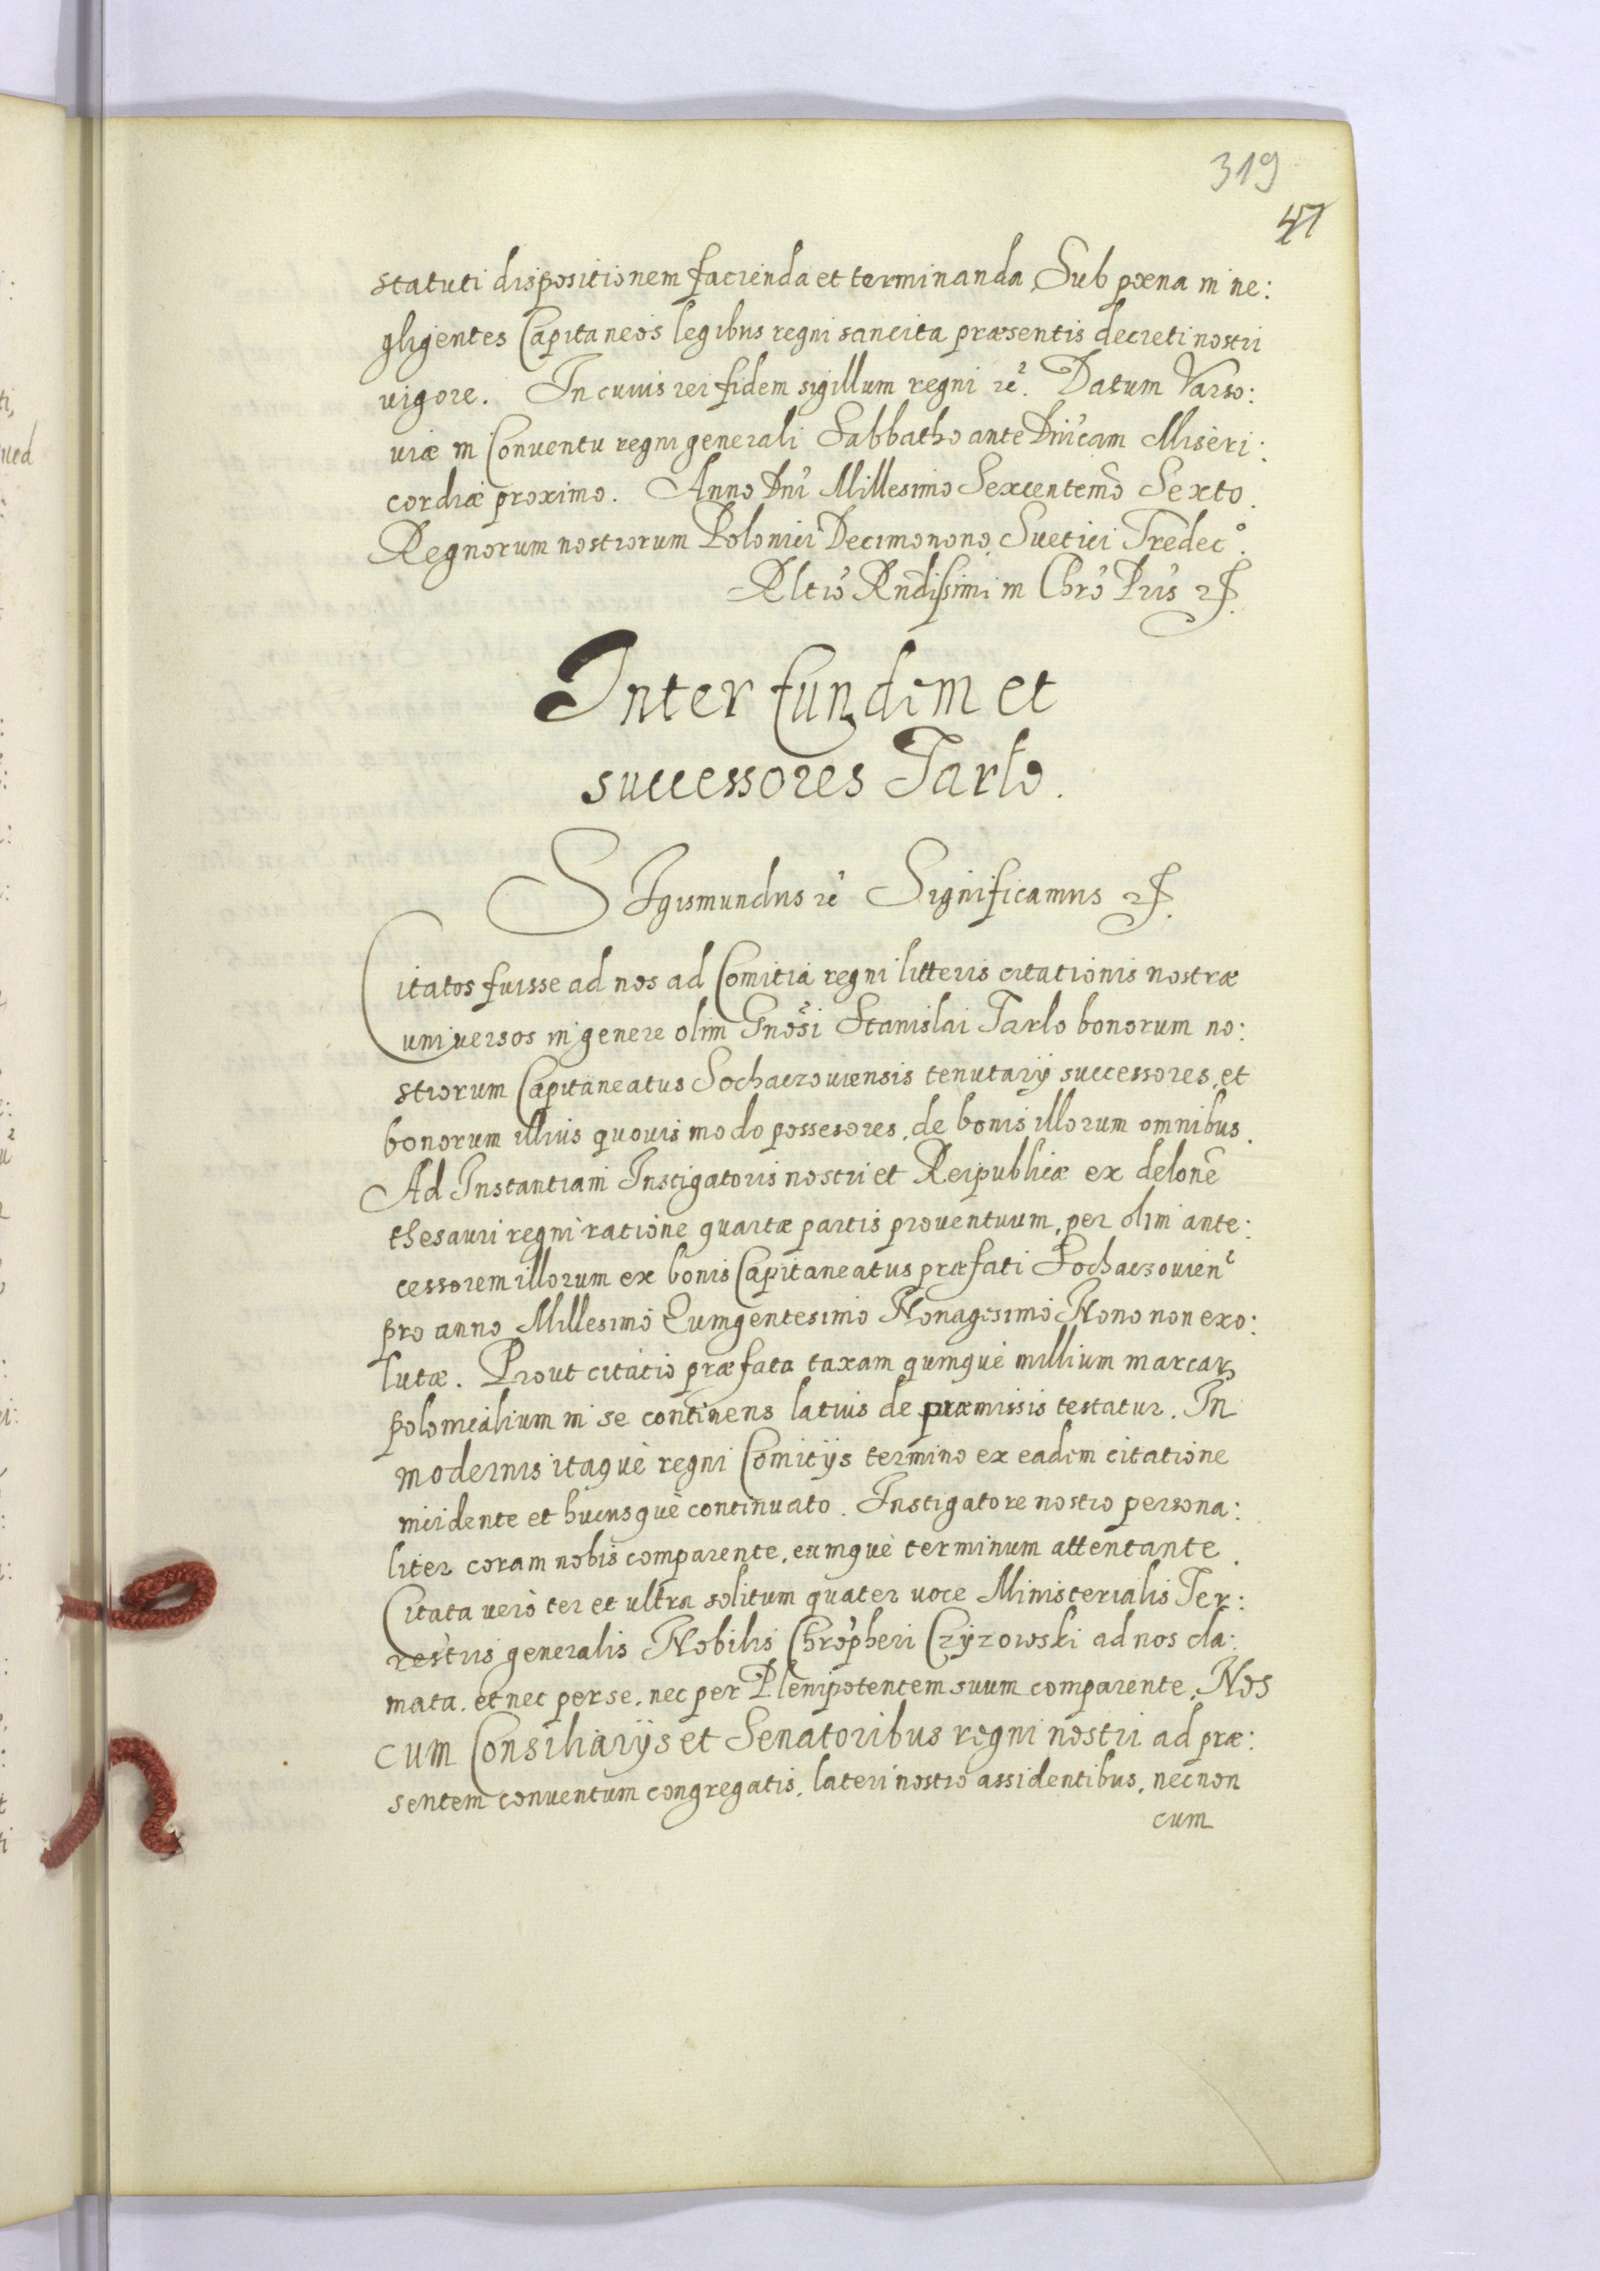 319
47
statuti dispositionem facienda et terminanda Sub poena in ne:
gligentes Capitaneos legibus regni sancita præsentis decreti nostri
vigore. In cuius rei fidem sigillum regni rc̃. Datum Varso:
uiæ in Conuentu regni generali Sabbatho ante Dnĩcam Miseri:
cordiæ proximo. Anno Dnĩ Millesimo Sexcentem̃o Sexto.
Regnorum nostrorum Polonici Decimonono Suetici Tredec°.
Rltiõ Rndissimi in Chrõ Prĩs
Inter eundem et
successores Tarlo.
SIgismundus rc̃ Significamus
Citatos fuisse ad nos ad Comitia regni litteris citationis nostræ
uniuersos in genere olim Gnõsi Stanislai Tarlo bonorum no:
strorum Capitaneatus Sochaczouiensis tenutarij successores et
bonorum illius quouis modo possesores, de bonis illorum omnibus.
Ad Instantiam Instigatoris nostri et Reipublicæ ex delonẽ
thesauri regni ratione quartæ partis prouentuum, per olim ante:
cessorem illorum ex bonis Capitaneatus præfati Sochaczouien̾
pro anno Millesimo Quingentesimo Nonagesimo Nono non exo:
lutæ. Prout citatio præfata taxam quinque millium marcaꝝ
polonicalium in se continens latius de præmissis testatur. In
modernis itaque regni Comitijs termino ex eadem citatione
incidente et hucusque continuato. Instigatore nostro persona:
liter coram nobis comparente, eumque terminum attentante.
Citata vero ter et ultra solitum quater uoce Ministerialis Ter:
restris generalis Nobilis Chrõpheri Czyzowski ad nos cla:
mata, et nec per se, nec per Plenipotentem suum comparente, Nos
cum Consiliarijs et Senatoribus regni nostri ad præ:
sentem conuentum congregatis, lateri nostro assidentibus, necnon
cum